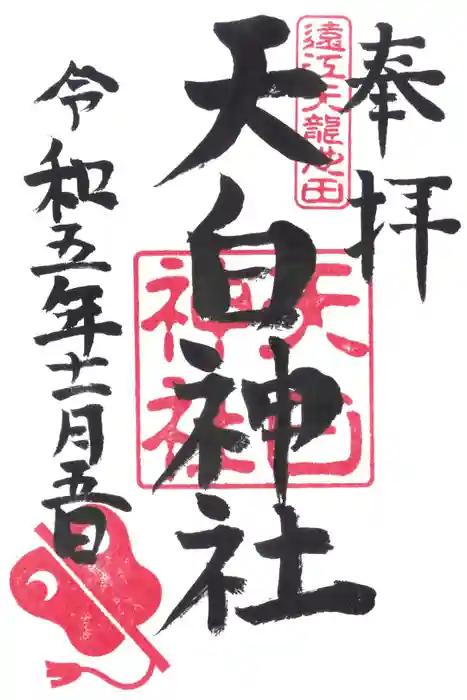 奉拝
遠江天龍池田
天白神社
天白
神社
令和五年十一月五日